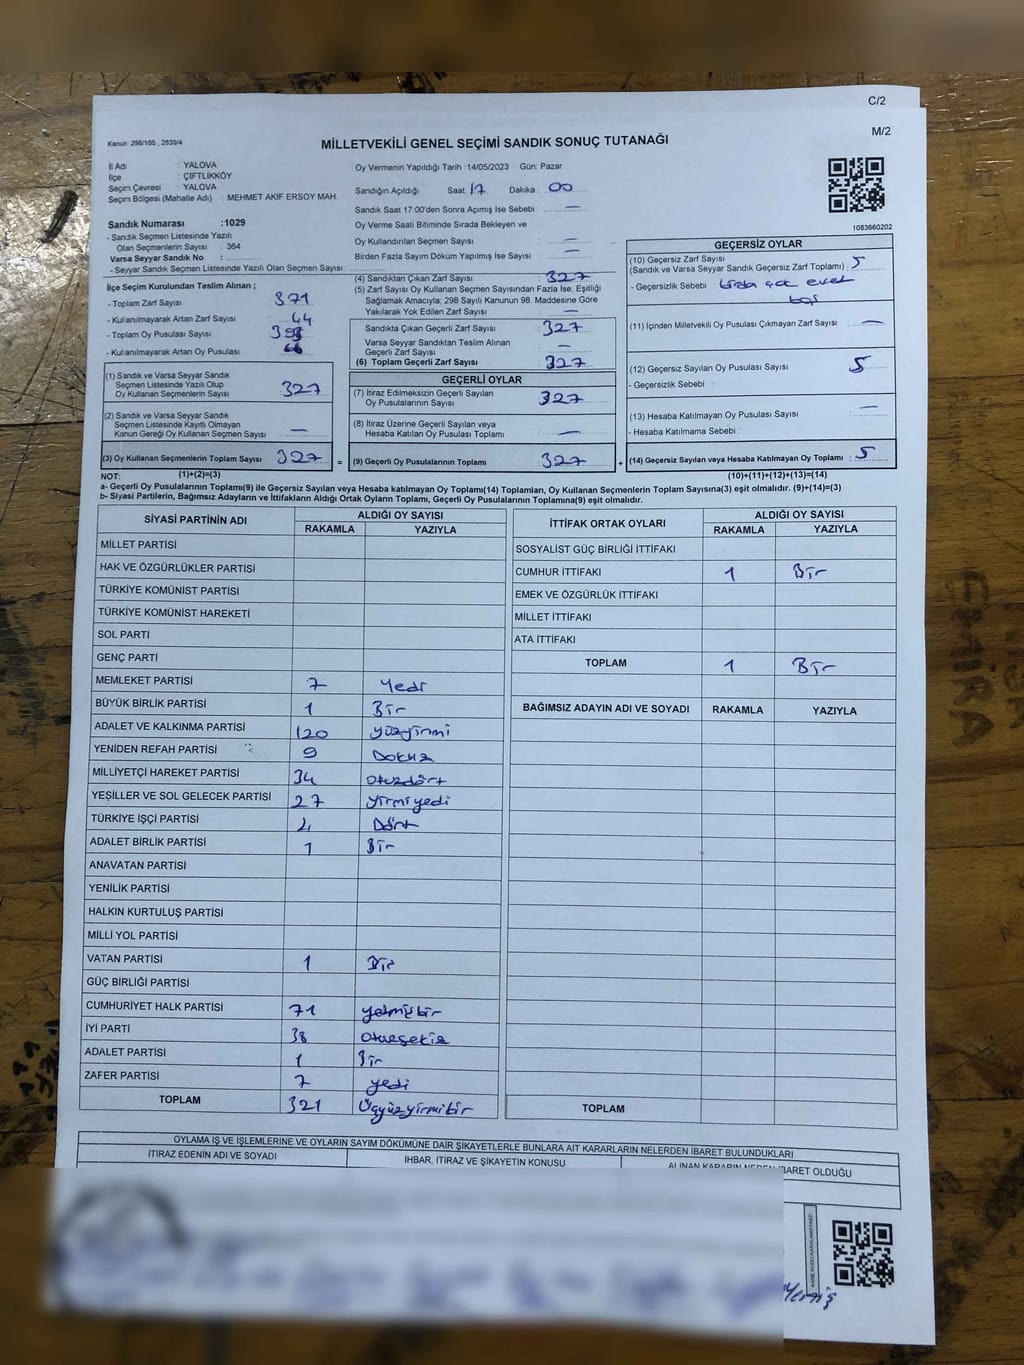 C/2
M/2
Kanun: 298/105 , 2839/4
MİLLETVEKİLİ GENEL SEÇİMİ SANDIK SONUÇ TUTANAĞI
İl Adı : YALOVA
İlçe : ÇİFTLİKKÖY
Seçim Çevresi : YALOVA
Seçim Bölgesi (Mahalle Adı) : MEHMET AKİF ERSOY MAH.
Sandık Numarası :1029
- Sandık Seçmen Listesinde Yazılı
Olan Seçmenlerin Sayısı : 364
Varsa Seyyar Sandık No :
- Seyyar Sandık Seçmen Listesinde Yazılı Olan Seçmen Sayısı:
İlçe Seçim Kurulundan Teslim Alınan ;
- Toplam Zarf Sayısı : 371
- Kullanılmayarak Artan Zarf Sayısı : 44
- Toplam Oy Pusulası Sayısı :
- Kullanılmayarak Artan Oy Pusulası :
(1) Sandık ve Varsa Seyyar Sandık
Seçmen Listesinde Yazılı Olup
Oy Kullanan Seçmenlerin Sayısı : 327
(2) Sandık ve Varsa Seyyar Sandık
Seçmen Listesinde Kayıtlı Olmayan
Kanun Gereği Oy Kullanan Seçmen Sayısı : —
(3) Oy Kullanan Seçmenlerin Toplam Sayısı : 327
(1)+(2)=(3)
Oy Vermenin Yapıldığı Tarih :14/05/2023 Gün: Pazar
Sandığın Açıldığı Saat: 17 Dakika : 00
Sandık Saat 17:00'den Sonra Açımış İse Sebebi : —
Oy Verme Saati Bitiminde Sırada Bekleyen ve
Oy Kullandırılan Seçmen Sayısı : —
Birden Fazla Sayım Döküm Yapılmış İse Sayısı : —
(4) Sandıktan Çıkan Zarf Sayısı : 327
(5) Zarf Sayısı Oy Kullanan Seçmen Sayısından Fazla İse, Eşitliği
Sağlamak Amacıyla; 298 Sayılı Kanunun 98. Maddesine Göre
Yakılarak Yok Edilen Zarf Sayısı : —
Sandıkta Çıkan Geçerli Zarf Sayısı : 327
Varsa Seyyar Sandıktan Teslim Alınan
Geçerli Zarf Sayısı : —
(6) Toplam Geçerli Zarf Sayısı : 327
GEÇERLİ OYLAR
(7) İtiraz Edilmeksizin Geçerli Sayılan
Oy Pusulalarının Sayısı : 327
(8) İtiraz Üzerine Geçerli Sayılan veya
Hesaba Katılan Oy Pusulası Toplamı : —
= (9) Geçerli Oy Pusulalarının Toplamı : 327 +
1083660202
GEÇERSİZ OYLAR
(10) Geçersiz Zarf Sayısı
(Sandık ve Varsa Seyyar Sandık Geçersiz Zarf Toplamı) : 5
- Geçersizlik Sebebi :
(11) İçinden Milletvekili Oy Pusulası Çıkmayan Zarf Sayısı : —
(12) Geçersiz Sayılan Oy Pusulası Sayısı : 5
- Geçersizlik Sebebi :
(13) Hesaba Katılmayan Oy Pusulası Sayısı : —
- Hesaba Katılmama Sebebi :
(14) Geçersiz Sayılan veya Hesaba Katılmayan Oy Toplamı : 5
(10)+(11)+(12)+(13)=(14)
NOT:
a- Geçerli Oy Pusulalarının Toplamı(9) ile Geçersiz Sayılan veya Hesaba katılmayan Oy Toplamı(14) Toplamları, Oy Kullanan Seçmenlerin Toplam Sayısına(3) eşit olmalıdır. (9)+(14)=(3)
b- Siyasi Partilerin, Bağımsız Adayların ve İttifakların Aldığı Ortak Oyların Toplamı, Geçerli Oy Pusulalarının Toplamına(9) eşit olmalıdır.
SİYASİ PARTİNİN ADI ALDIĞI OY SAYISI
RAKAMLA YAZIYLA
MİLLET PARTİSİ
HAK VE ÖZGÜRLÜKLER PARTİSİ
TÜRKİYE KOMÜNİST PARTİSİ
TÜRKİYE KOMÜNİST HAREKETİ
SOL PARTİ
GENÇ PARTİ
MEMLEKET PARTİSİ 7 Yedi
BÜYÜK BİRLİK PARTİSİ 1 Bir
ADALET VE KALKINMA PARTİSİ 120 yüzyirmi
YENİDEN REFAH PARTİSİ 9 Dokuz
MİLLİYETÇİ HAREKET PARTİSİ 34 otuzdört
YEŞİLLER VE SOL GELECEK PARTİSİ 27 yirmiyedi
TÜRKİYE İŞÇİ PARTİSİ 4 Dört
ADALET BİRLİK PARTİSİ 1 Bir
ANAVATAN PARTİSİ
YENİLİK PARTİSİ
HALKIN KURTULUŞ PARTİSİ
MİLLİ YOL PARTİSİ
VATAN PARTİSİ 1 Bir
GÜÇ BİRLİĞİ PARTİSİ
CUMHURİYET HALK PARTİSİ 71 yetmişbir
İYİ PARTİ 38 otuzsekiz
ADALET PARTİSİ 1 Bir
ZAFER PARTİSİ 7 yedi
TOPLAM 321 Üçyüzyirmibir
İTTİFAK ORTAK OYLARI ALDIĞI OY SAYISI
RAKAMLA YAZIYLA
SOSYALİST GÜÇ BİRLİĞİ İTTİFAKI
CUMHUR İTTİFAKI 1 Bir
EMEK VE ÖZGÜRLÜK İTTİFAKI
MİLLET İTTİFAKI
ATA İTTİFAKI
TOPLAM 1 Bir
BAĞIMSIZ ADAYIN ADI VE SOYADI RAKAMLA YAZIYLA
TOPLAM
OYLAMA İŞ VE İŞLEMLERİNE VE OYLARIN SAYIM DÖKÜMÜNE DAİR ŞİKAYETLERLE BUNLARA AİT KARARLARIN NELERDEN İBARET BULUNDUKLARI
İTİRAZ EDENİN ADI VE SOYADI İHBAR, İTİRAZ VE ŞİKAYETİN KONUSU ALINAN KARARIN NEDEN İBARET OLDUĞU